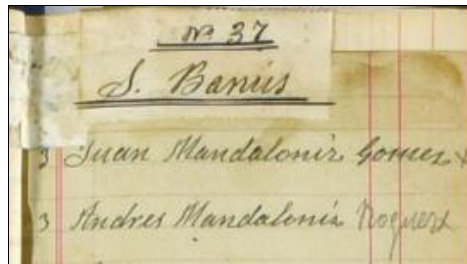 Nº 37
S. Banús
3 Juan Mandaloniz Gomez
3 Andres Mandaloniz Noguera